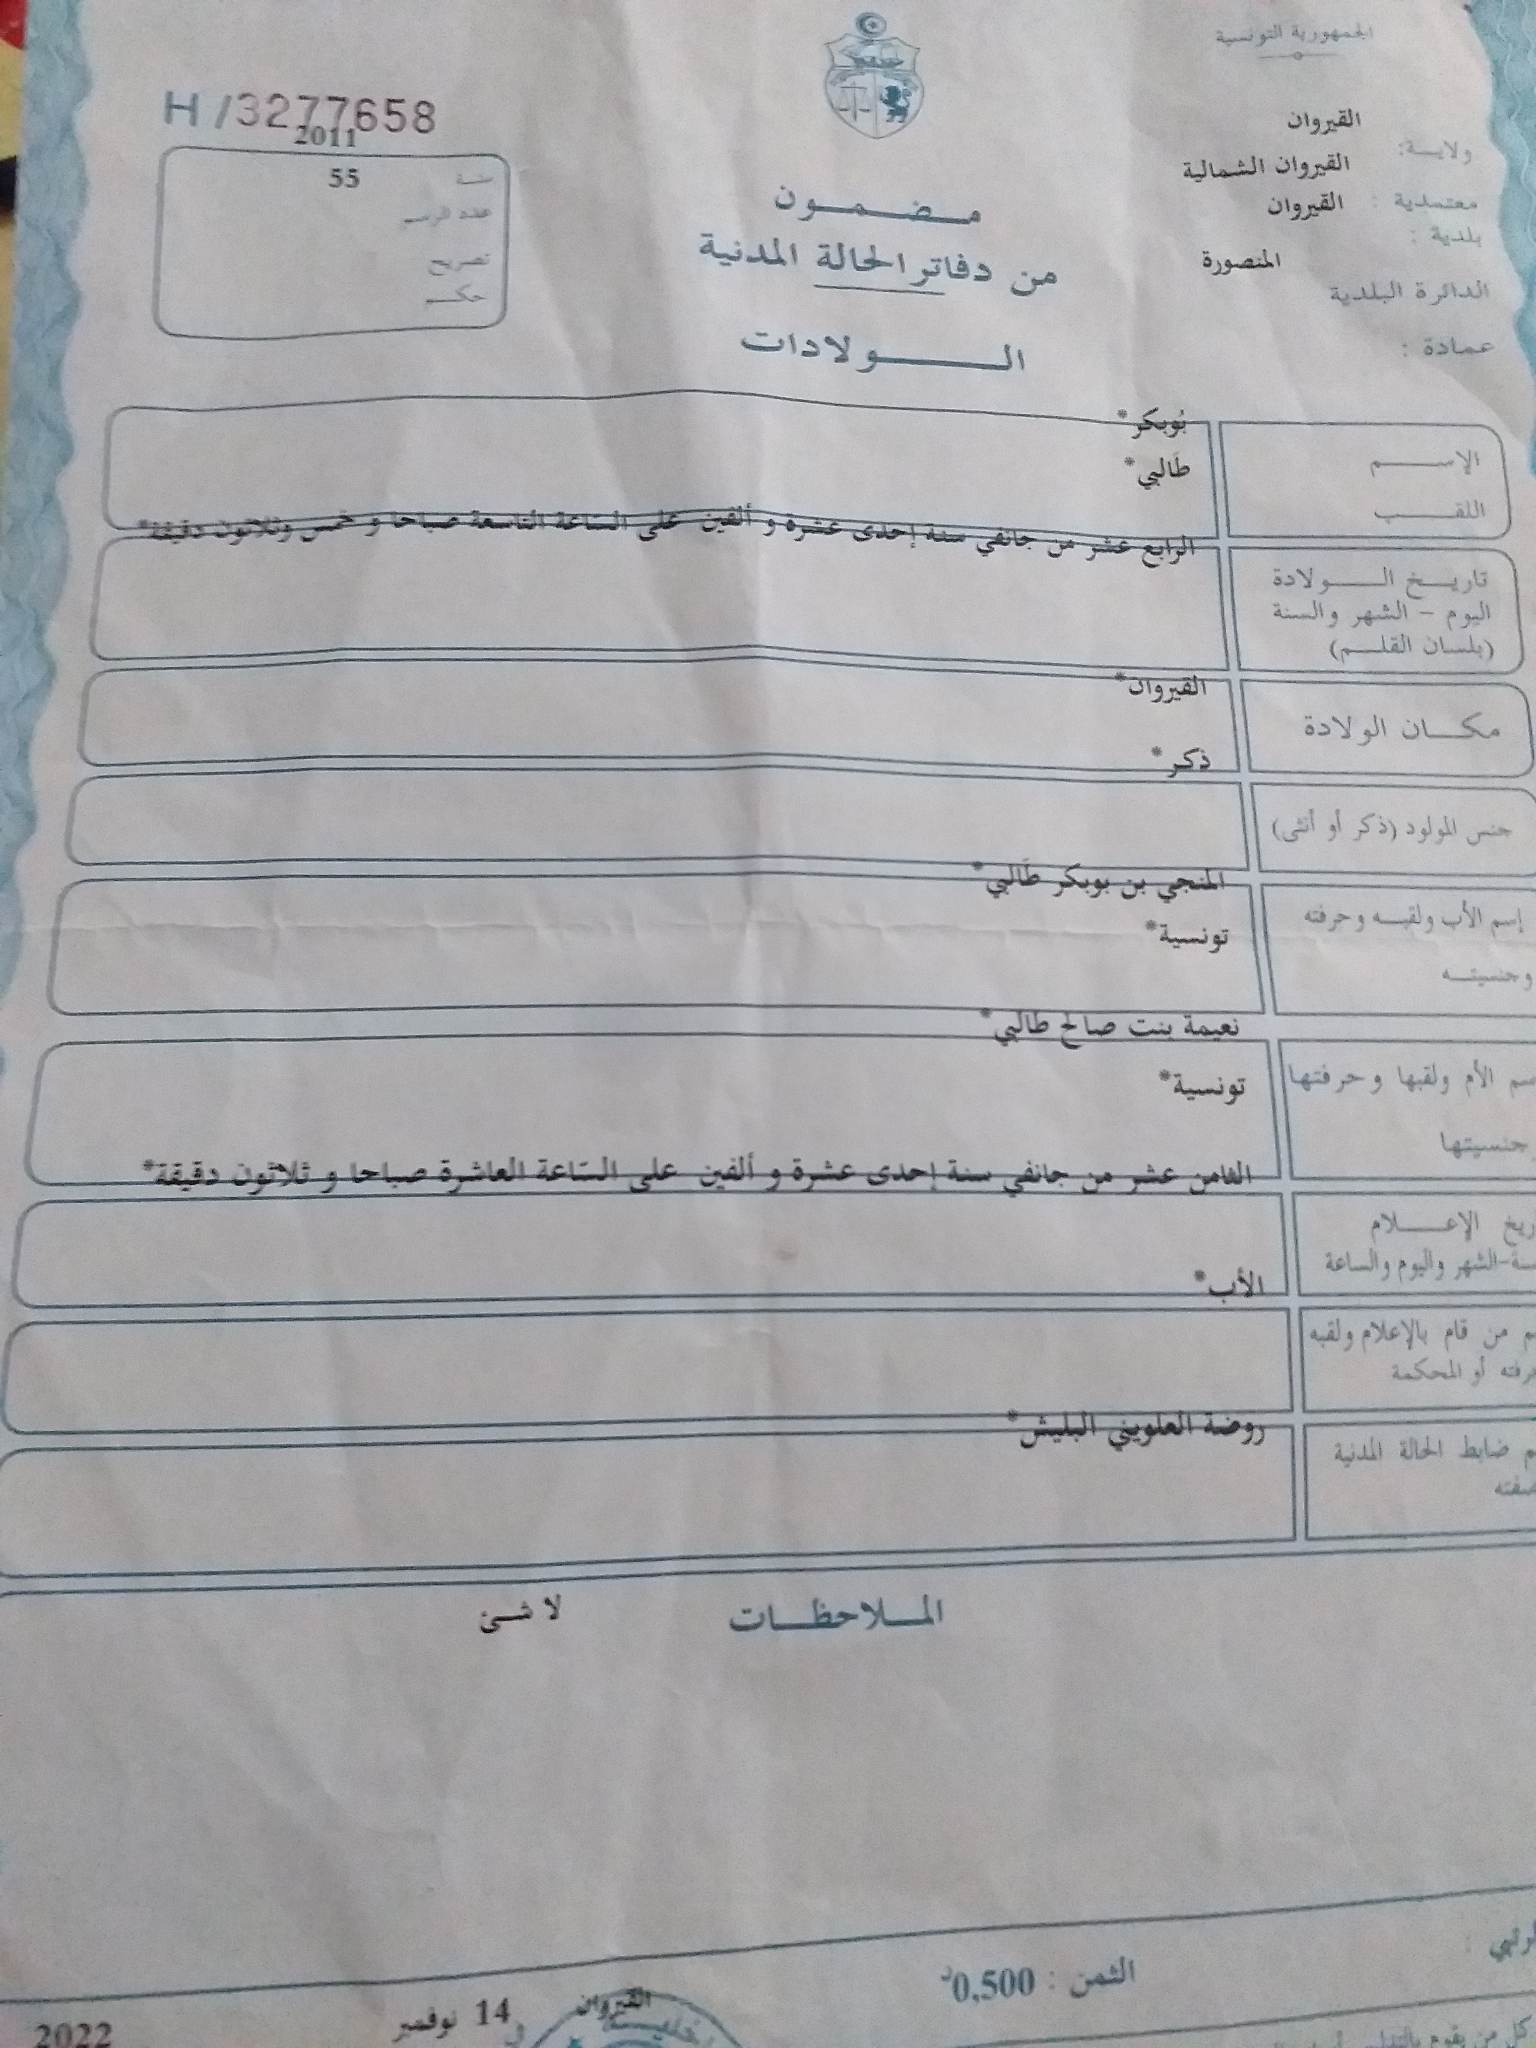 الجمهورية التونسية
H/3277658
القيروان
ولاية:
القيروان الشمالية
معتمدية :
القيروان
بلدية :
المنصورة
الدائرة البلدية
عمادة :
2011
سنة
55
عدد الرسم
تصريح
حكم
مضمون
من دفاتر الحالة المدنية
الولادات
بُوبكر*
الإسم
طَالبي*
اللقب
الرابع عشر من جانفي سنة إحدى عشرة و ألفين على الساعة التاسعة صباحا و خمس وثلاثون دقيقة*
تاريخ الولادة
اليوم – الشهر والسنة
(بلسان القلم)
القيروان*
مكان الولادة
ذكر*
جنس المولود (ذكر أو أنثى)
المنجي بن بوبكر طَالبي*
إسم الأب ولقبه وحرفته
تونسية*
وجنسيته
نعيمة بنت صالح طالبي*
سم الأم ولقبها وحرفتها
تونسية*
وجنسيتها
الثامن عشر من جانفي سنة إحدى عشرة و ألفين على الساعة العاشرة صباحا و ثلاثون دقيقة*
ريخ الإعلام
سنة-الشهر واليوم والساعة
الأب*
م من قام بالإعلام ولقبه
رفته أو المحكمة
روضة العلويني البليش*
م ضابط الحالة المدنية
صفته
الملاحظات
لا شئ
الثمن : 0,500د
القيروان
14 نوفمبر
2022
كل من يقوم